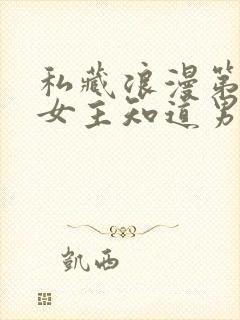 私藏浪漫第
女王知道男
凯西